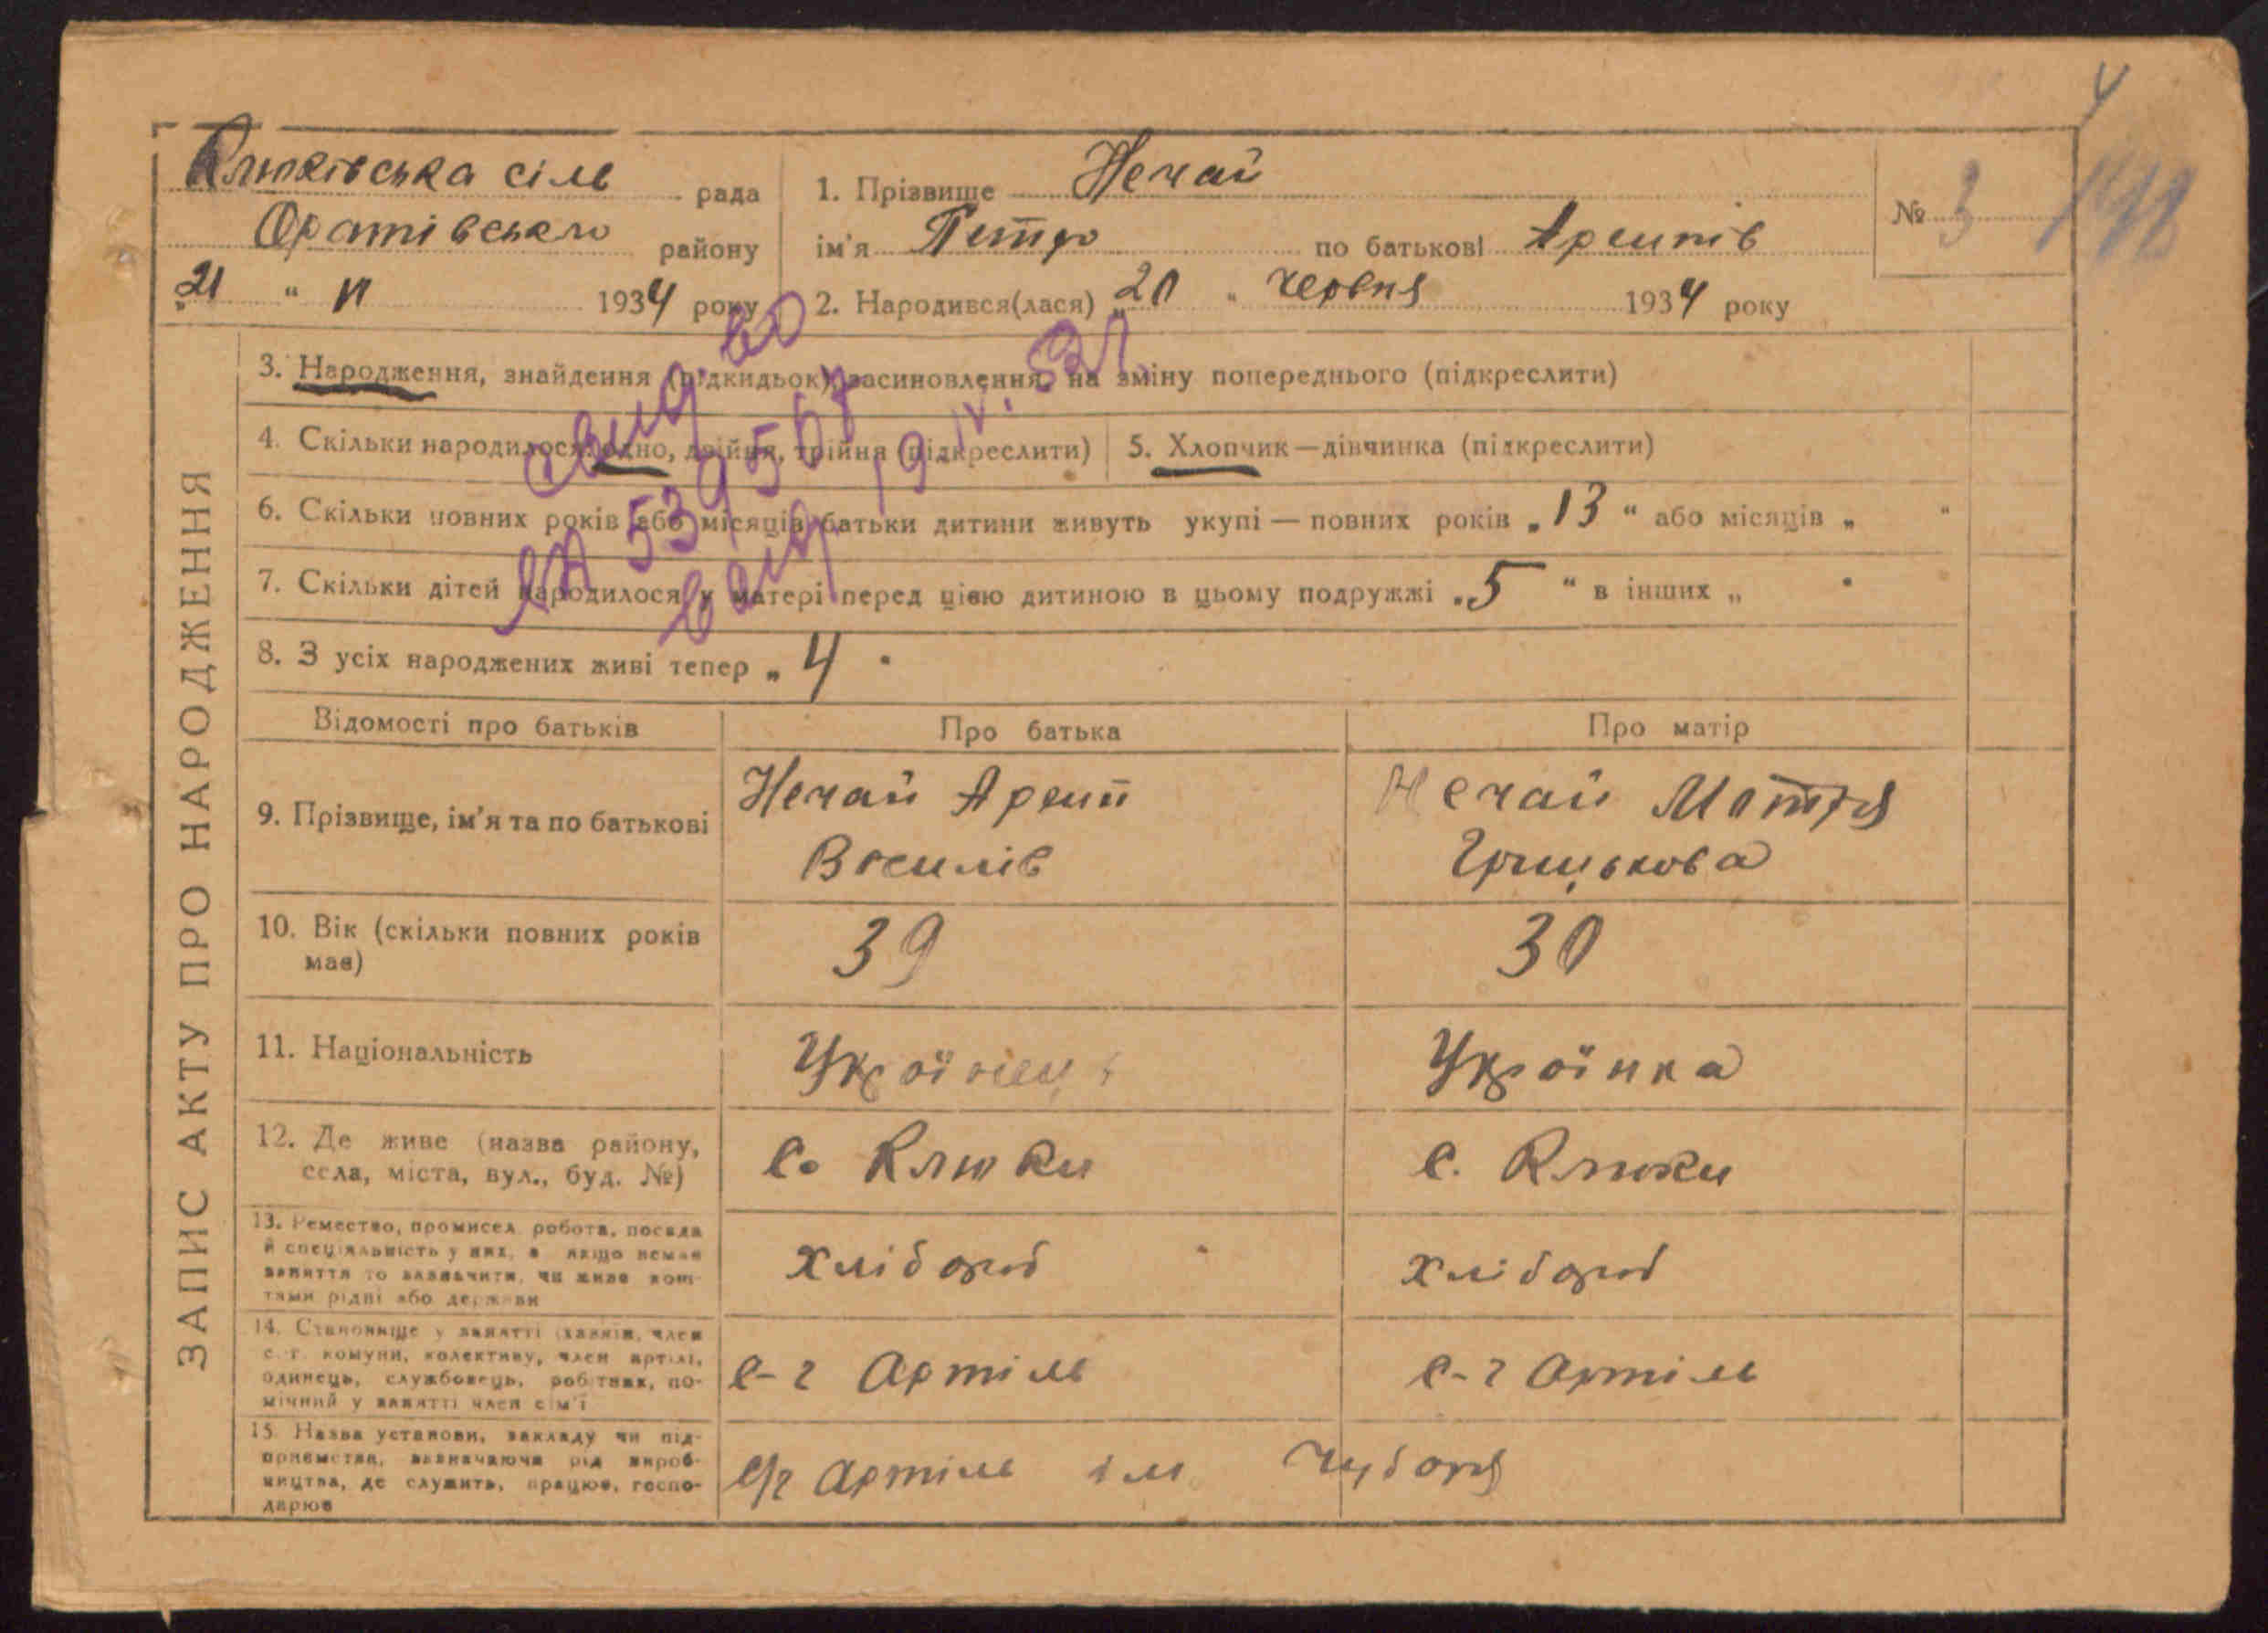 Клюківська сіль рада
Оратівсько району
„21 “ VI 1934 року
1. Прізвище Нечай
ім'я Петро по батькові Архипів
2. Народився(лася) „20 “ червня 1934 року
№ 3
ЗАПИС АКТУ ПРО НАРОДЖЕННЯ
3. Народження, знайдення (підкидьок), засиновлення, на зміну попереднього (підкреслити)
4. Скільки народилося: одно, двійня, трійня (підкреслити)
5. Хлопчик—дівчинка (підкреслити)
6. Скільки повних років або місяців батьки дитини живуть укупі — повних років „13 “ або місяців „ “
7. Скільки дітей народилося у матері перед цією дитиною в цьому подружжі „5 “ в інших „ “
8. З усіх народжених живі тепер „ 4 “
Відомості про батьків
Про батька
Про матір
9. Прізвище, ім'я та по батькові
Нечай Архип
Василів
Нечай Мотря
Грицькова
10. Вік (скільки повних років
має)
39
30
11. Національність
Українець
Українка
12. Де живе (назва району,
села, міста, вул., буд. №)
с. Клюки
с. Клюки
13. Ремество, промисел, робота, посада
й спеціяльність у них, а якщо немає
заняття то зазначити, чи живе кош-
тами рідні або держави
хлібороб
хлібороб
14. Становище у занятті (хазяїн, член
с.-г. комуни, колективу, член артілі,
одинець, службовець, робітник, по-
мічний у занятті член сім'ї
с-г Артіль
с-г Артіль
15. Назва установи, закладу чи під-
приємства, зазначаючи рід вироб-
ництва, де служить, працює, госпо-
дарює
с/г Артіль ім Чубаря